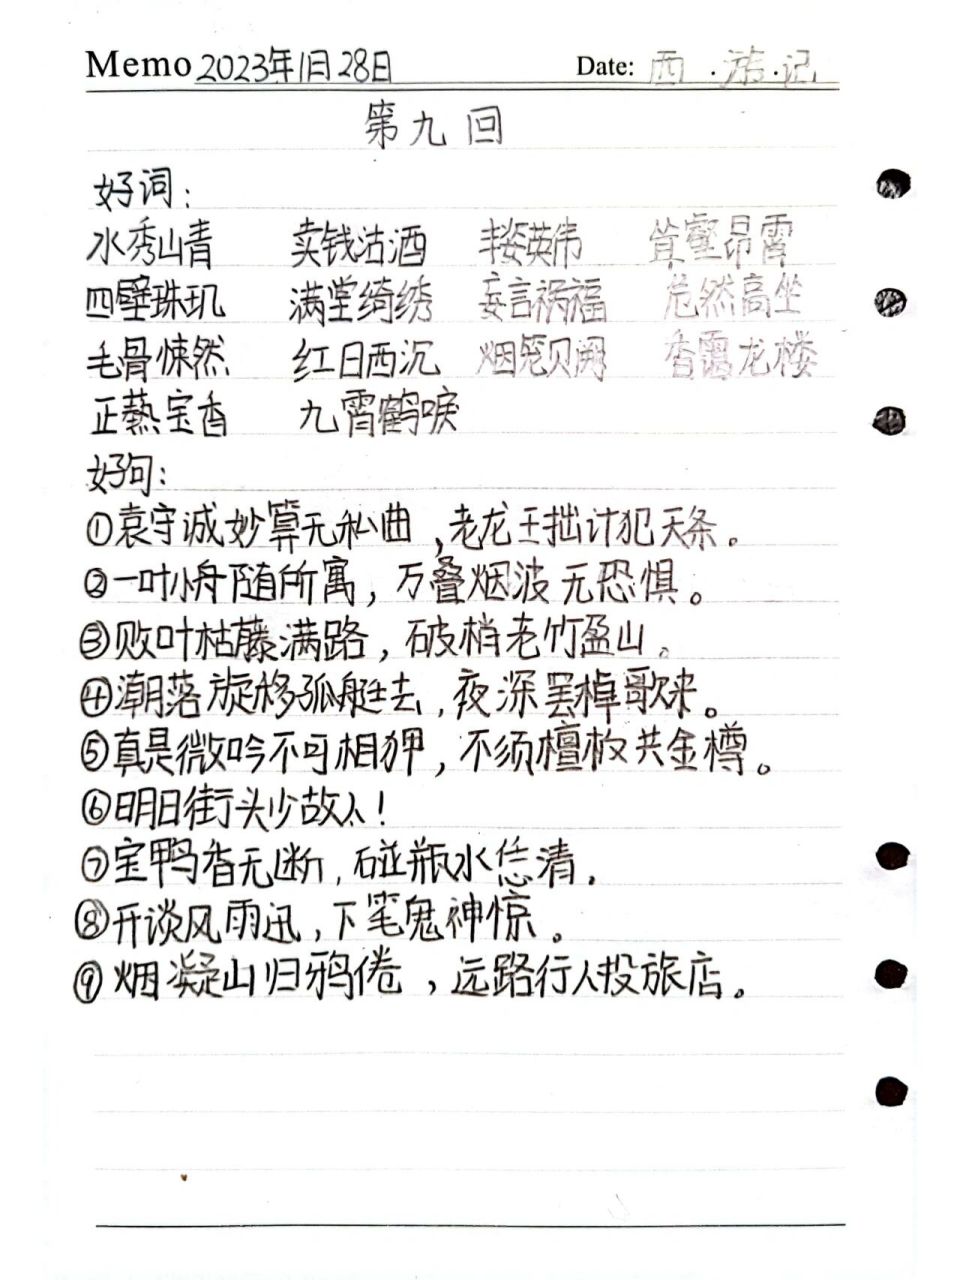 Memo 2023年1月28日 Date: 西.游.记
第九回
好词：
水秀山青 卖钱沽酒 丰姿英伟 耸壑昂霄
四壁珠玑 满堂绮绣 妄言祸福 危然高坐
毛骨悚然 红日西沉 烟笼贝阙 香霭龙楼
正爇宝香 九霄鹤唳
好句：
①袁守诚妙算无私曲，老龙王拙计犯天条。
②一叶小舟随所寓，万叠烟波无恐惧。
③败叶枯藤满路，破梢老竹盈山。
④潮落旋移孤艇去，夜深罢棹歌来。
⑤真是微吟不可相狎，不须檀板共金樽。
⑥明日街头少故人！
⑦宝鸭香无断，磁瓶水恁清.
⑧开谈风雨迅，下笔鬼神惊。
⑨烟凝山归鸦倦，远路行人投旅店。